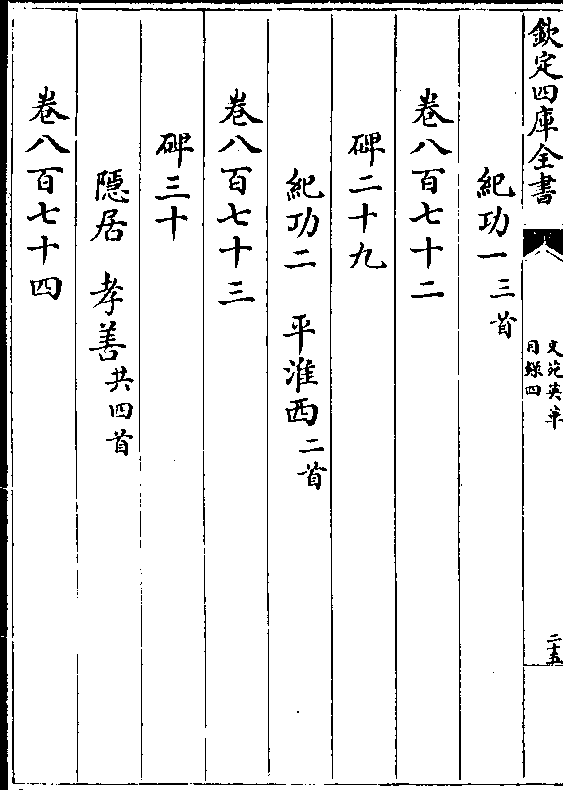 欽定四庫全書
文苑英華
目錄四
二十五
紀功一三首
卷八百七十二
碑二十九
紀功二 平淮西二首
卷八百七十三
碑三十
隱居 孝善共四首
卷八百七十四